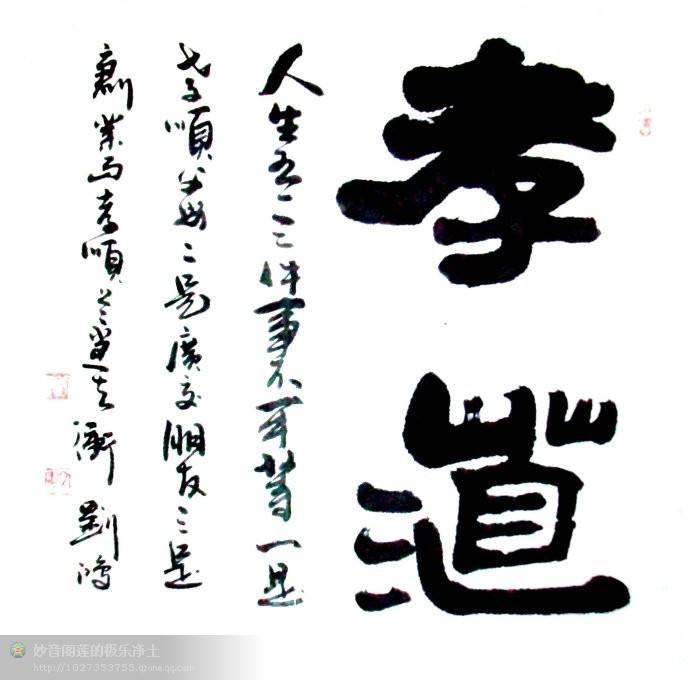 孝道
人生有三件事不可等一是
孝順父母二是廣交朋友三是
創業而孝順
妙音阁莲的极乐净土
http://1027353755.qzone.qq.com